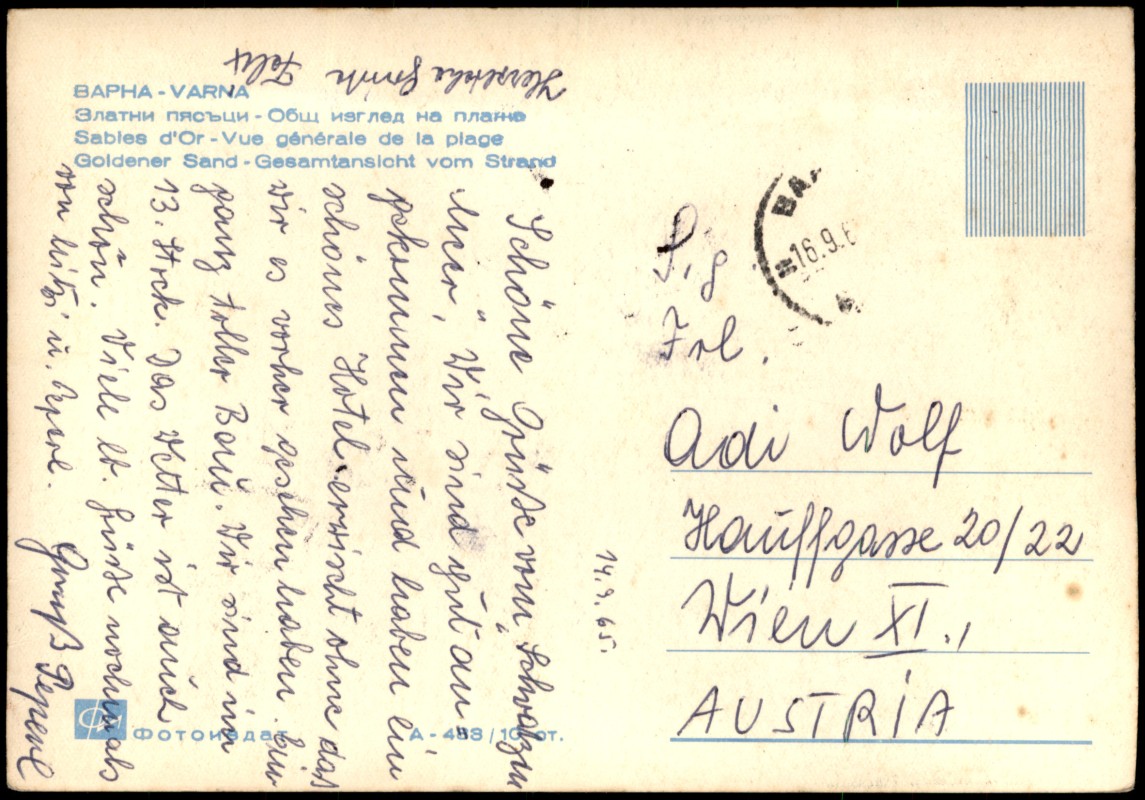 ВАРНА - VARNA
Златни пясъци - Общ изглед на плажа
Sables d'Or - Vue générale de la plage
Goldener Sand - Gesamtansicht vom Strand
Schöne Grüße vom "Schwarzen
Meer". Wir sind gut an-
gekommen und haben ein
schönes Hotel erwischt ohne das
wir es vorher gesehen haben. Ein
ganz toller Bau. Wir sind im
13. Stock. Das Wetter ist auch
schön. Viele lb. Grüße nochmals
von Mitzi u.
Gruß Peperl
Herzliche Felix
14.9.65.
16.9.6
S.g
Frl.
Adi Wolf
Hauffgasse 20/22
Wien XI.,
AUSTRIA
Фотоизда
А - 458/10 от.